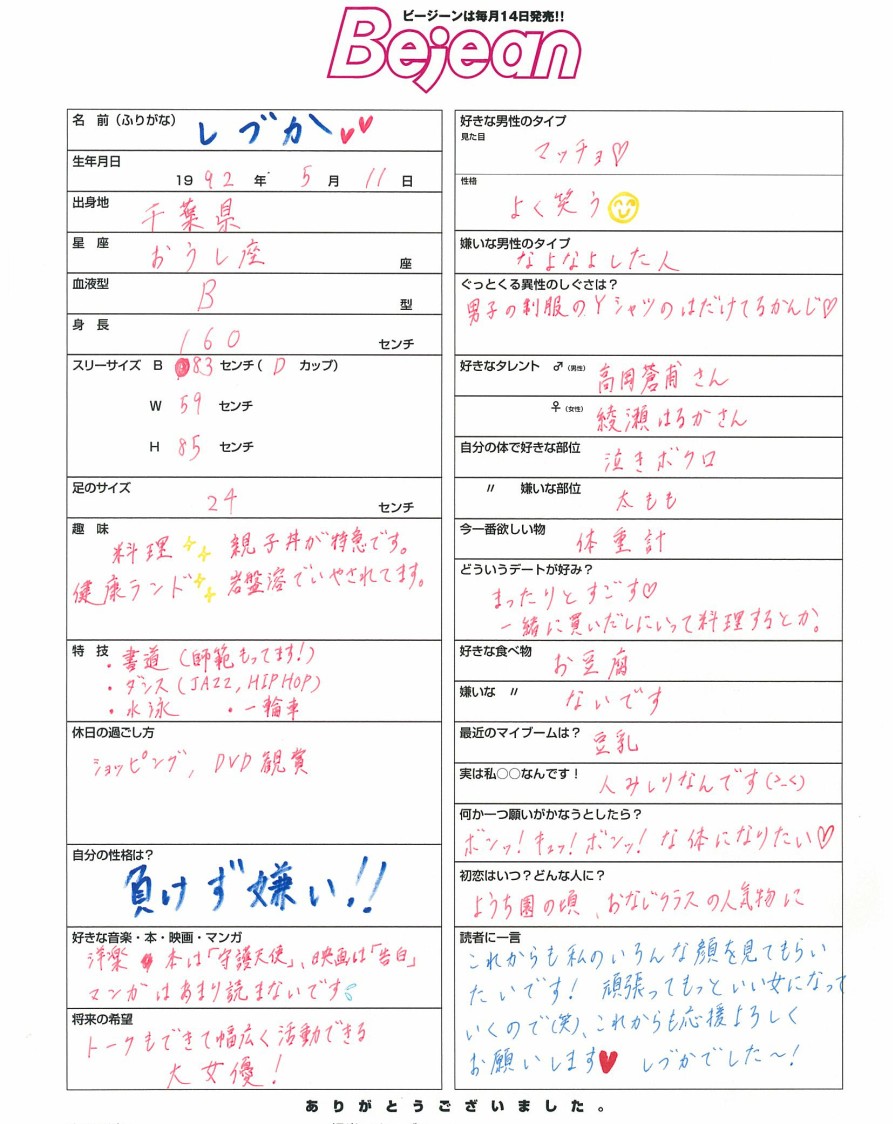 ビージーンは毎月14日発売!!
Bejean
名　前（ふりがな） しづか♥♥
生年月日
1992年 5月 11日
出身地
千葉県
星　座
おうし座 座
血液型
B 型
身　長
160 センチ
スリーサイズ B 83センチ( D カップ)
W 59 センチ
H 85 センチ
足のサイズ
24 センチ
趣　味
料理 親子丼が特急です。
健康ランド 岩盤溶でいやされてます。
特　技
・書道（師範もってます!）
・ダンス(JAZZ, HIPHOP)
・水泳 ・一輪車
休日の過ごし方
ショッピング, DVD観賞
自分の性格は?
負けず嫌い!!
好きな音楽・本・映画・マンガ
洋楽 本は「守護天使」、映画は「告白」
マンガはあまり読まないです
将来の希望
トークもできて幅広く活動できる
大女優!
好きな男性のタイプ
見た目
マッチョ♡
性格
よく笑う
嫌いな男性のタイプ
なよなよした人
ぐっとくる異性のしぐさは?
男子の制服のYシャツのはだけてるかんじ♡
好きなタレント ♂（男性） 高岡蒼甫さん
♀（女性） 綾瀬はるかさん
自分の体で好きな部位 泣きボクロ
〃 嫌いな部位 太もも
今一番欲しい物
体重計
どういうデートが好み?
まったりとすごす♡
一緒に買いだしにいって料理するとか。
好きな食べ物
お豆腐
嫌いな 〃
ないです
最近のマイブームは? 豆乳
実は私○○なんです!
人みしりなんです(>_<)
何か一つ願いがかなうとしたら?
ボンッ!キュッ!ボンッ!な体になりたい♡
初恋はいつ?どんな人に?
ようち園の頃、おなじクラスの人気物に
読者に一言
これからも私のいろんな顔を見てもらい
たいです! 頑張ってもっといい女になって
いくので(笑)、これからも応援よろしく
お願いします♥ しづかでした〜!
ありがとうございました。